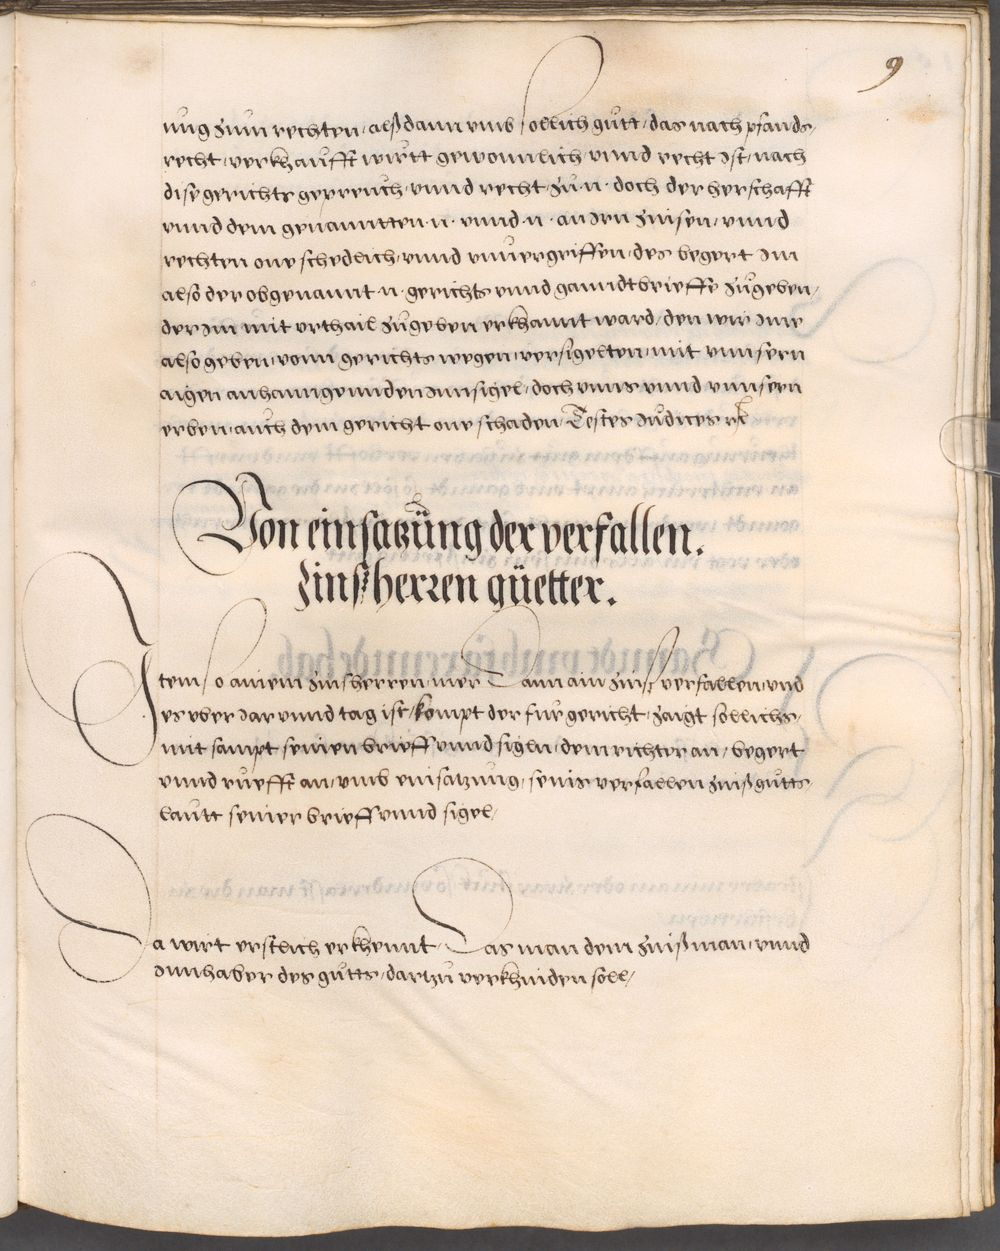 9
nug zum rechten, alßdann vmb sollich gůtt, das nach pfands,
recht, verkhaůfft wirtt gewonnlich, vnnd recht ist, nach
dise gerichts geprench, vnnd recht, zů .n. doch der herschafft
vnnd dem genanntten .n. vnnd .n. an iren zinsen, vnnd
rechten one schedlich, vnnd vnuergriffen, des begert im
also der obgenannt .n. gerichts vnnd ganndtbrieffe zůgeben,
der im mit vrthail zůgeben erkhannt ward, den wir ime
also geben, vonn gerichts wegen, versigelten, mit vnnsern
aigen anhanngennden innsigel, doch vnns vnnd vnnsern
erben, auch dem gericht one schaden, Testes iudices rc
Von einsatzüng der verfallen.
Zinßherren güetter.
Item so ainem zinsherren, mer Dann ain zinß verfallen, vnd
es vber iar vnnd tag ist, kompt der fur gericht, zaigt sollichs,
mit sampt seinen brieff vnnd sigln, dem richter an, begert
vnnd rüefft an, vmb einsatzung, seins verfallen zinßgůtts,
lautt seiner brieff vnnd sigel,
Da wirt erstlich erkhennt, Das man dem zinßman, vnnd
innhaber des gůtts, dartzů verkhinden soll,